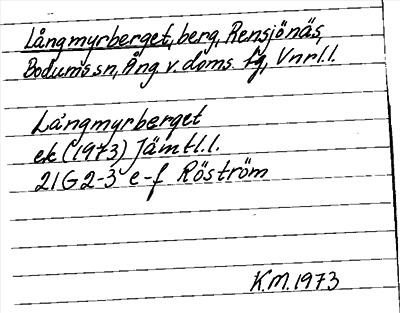 Långmyrberget, berg, Rensjönäs,
Bodums sn, Ång v. doms fg, Vnrl.l.
Långmyrberget
ek (1973) Jämtl.l.
21G2-3 e-f Röström
K.M. 1973